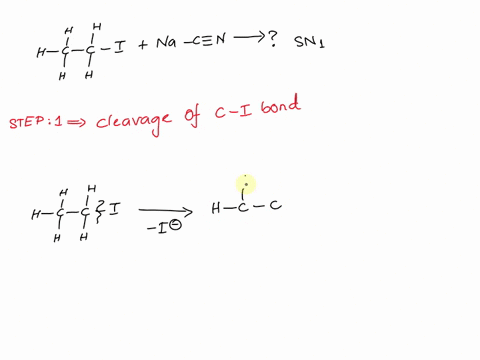 H H
H-C-C-I + Na-C≡N → ? SN1
H H
STEP:1 ⇒ cleavage of C-I bond
H H
H-C-C I → H-C-C
-I⊖
H H